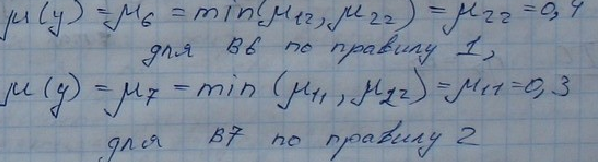 μ(y) = μ6 = min(μ12, μ22) = μ22 = 0,4
для В6 по правилу 1,
μ(y) = μ7 = min (μ11, μ22) = μ11 = 0,3
для В7 по правилу 2